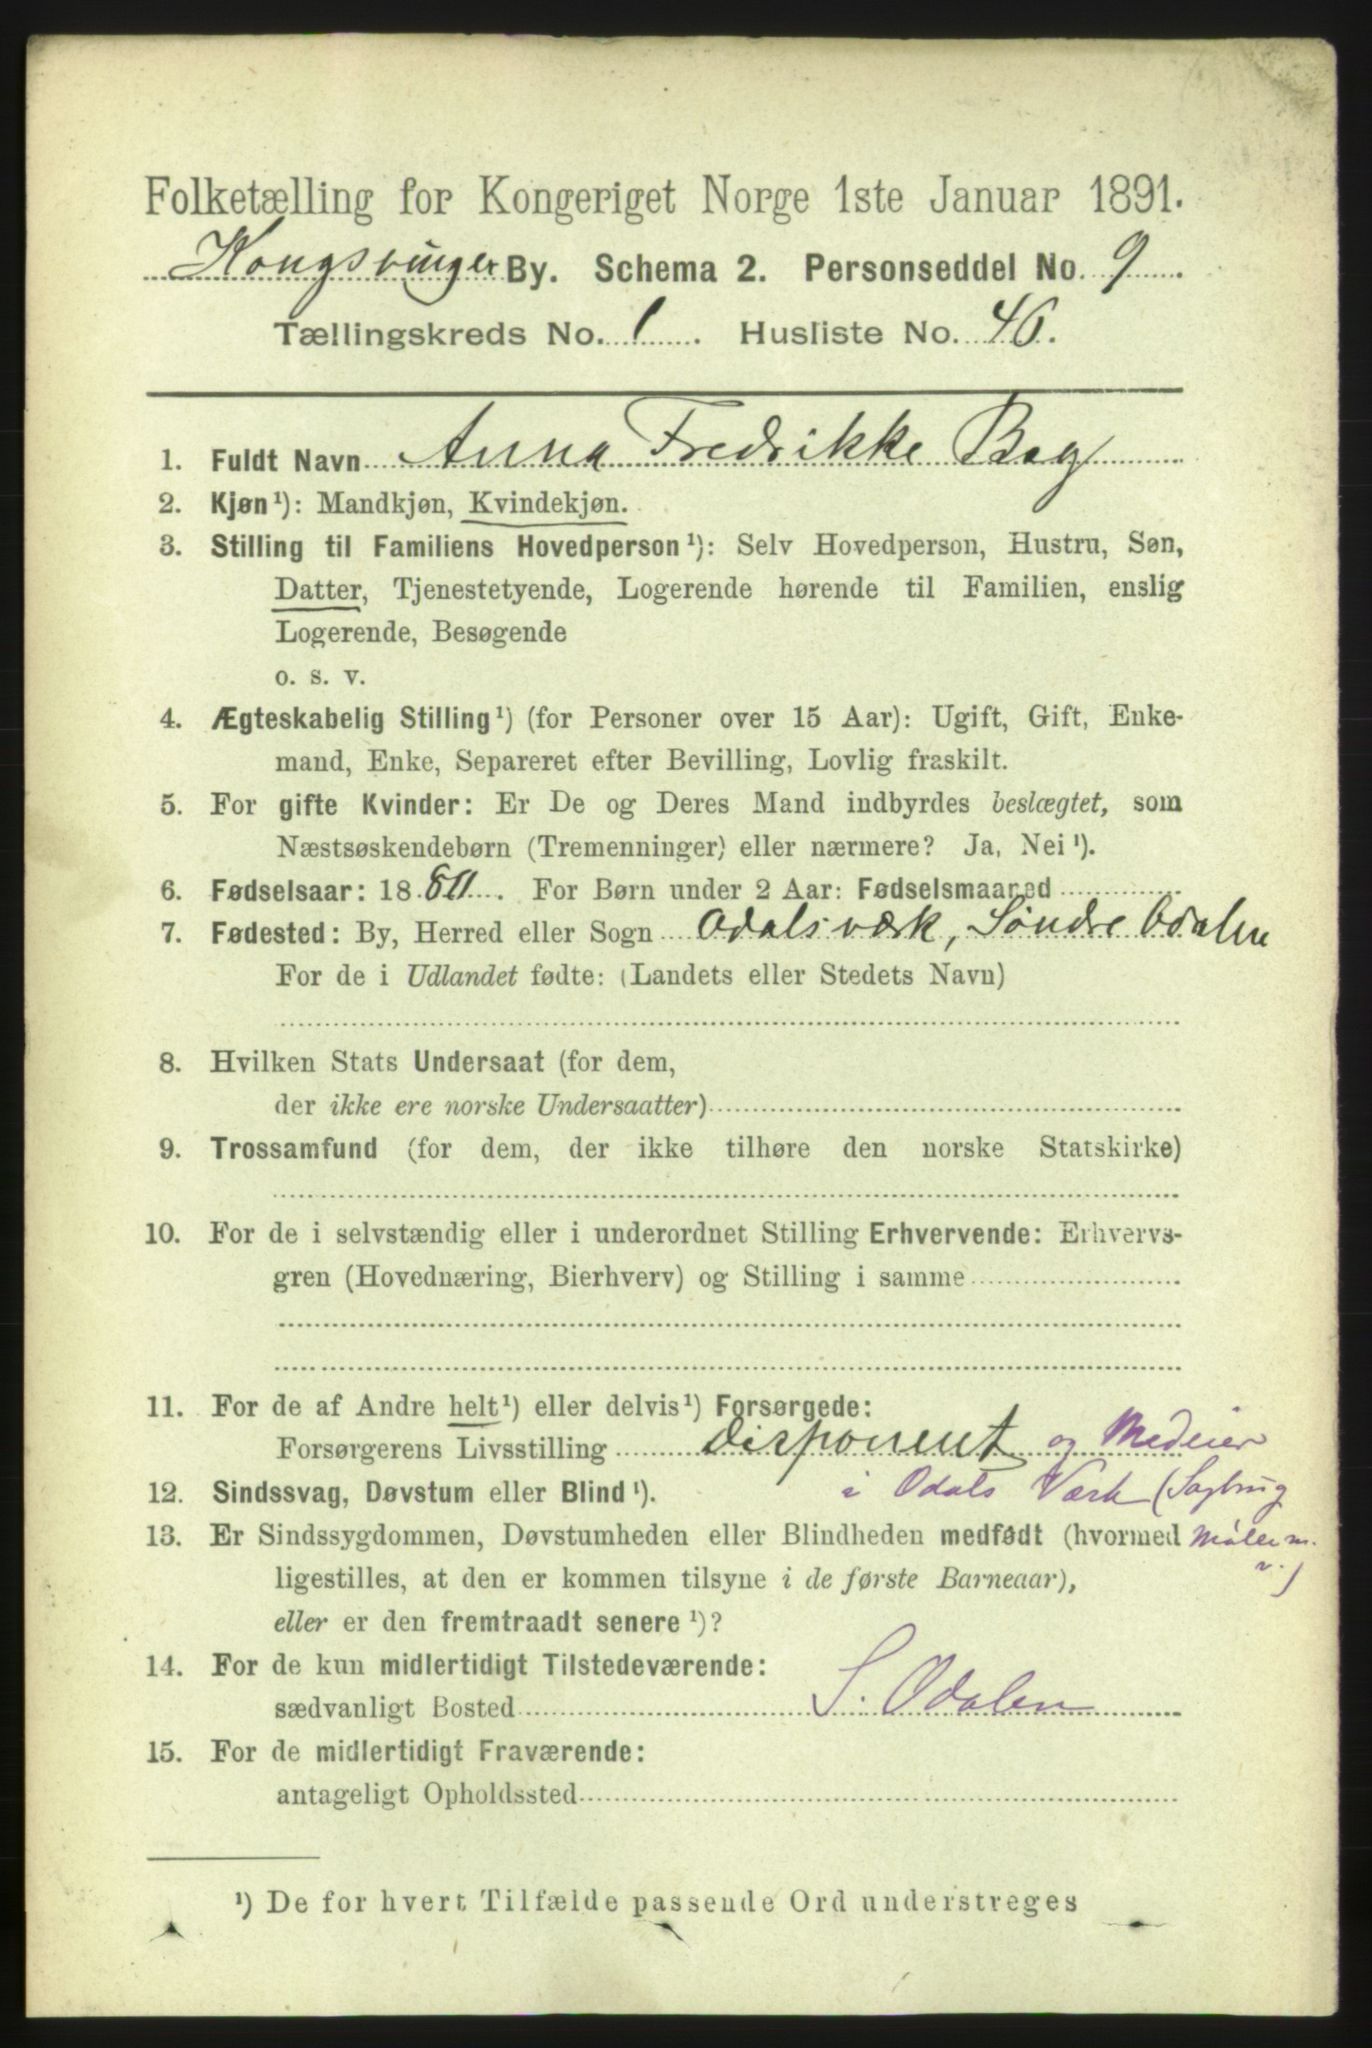 Folketælling for Kongeriget Norge 1ste Januar 1891.
Kongsvinger By. Schema 2. Personseddel No. 9
Tællingskreds No. 1. Husliste No. 46.
1. Fuldt Navn Anna Fredrikke Bøy
2. Kjøn¹): Mandkjøn, Kvindekjøn.
3. Stilling til Familiens Hovedperson¹): Selv Hovedperson, Hustru, Søn,
Datter, Tjenestetyende, Logerende hørende til Familien, enslig
Logerende, Besøgende
o. s. v.
4. Ægteskabelig Stilling¹) (for Personer over 15 Aar): Ugift, Gift, Enke-
mand, Enke, Separeret efter Bevilling, Lovlig fraskilt.
5. For gifte Kvinder: Er De og Deres Mand indbyrdes beslægtet, som
Næstsøskendebørn (Tremenninger) eller nærmere? Ja, Nei¹).
6. Fødselsaar: 1880. For Børn under 2 Aar: Fødselsmaaned
7. Fødested: By, Herred eller Sogn Odalsværk, Søndre Odalen
For de i Udlandet fødte: (Landets eller Stedets Navn)
8. Hvilken Stats Undersaat (for dem,
der ikke ere norske Undersaatter)
9. Trossamfund (for dem, der ikke tilhøre den norske Statskirke)
10. For de i selvstændig eller i underordnet Stilling Erhvervende: Erhvervs-
gren (Hovednæring, Bierhverv) og Stilling i samme
11. For de af Andre helt¹) eller delvis¹) Forsørgede:
Forsørgerens Livsstilling Disponent og Medeier
12. Sindssvag, Døvstum eller Blind¹). i Odals Værk (Sagbrug
13. Er Sindssygdommen, Døvstumheden eller Blindheden medfødt (hvormed Møller m.
ligestilles, at den er kommen tilsyne i de første Barneaar), v.)
eller er den fremtraadt senere¹)?
14. For de kun midlertidigt Tilstedeværende:
sædvanligt Bosted S. Odalen
15. For de midlertidigt Fraværende:
antageligt Opholdssted
¹) De for hvert Tilfælde passende Ord understreges